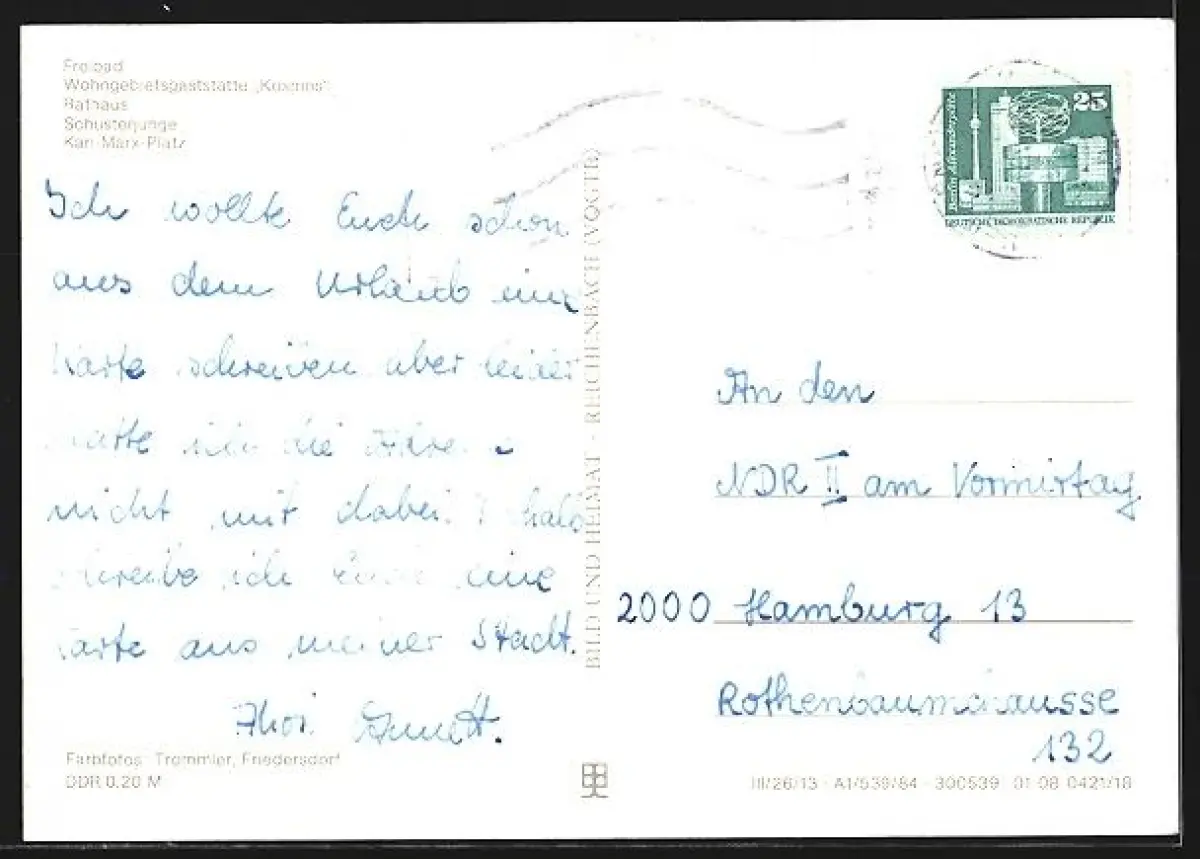 Freibad
Wohngebietsgaststätte
Rathaus
Schusterjunge
Karl-Marx-Platz
25
Berlin Alexanderplatz
DEUTSCHE DEMOKRATISCHE REPUBLIK
Ich wollte Euch schon
aus dem Urlaub eine
Karte schreiben aber leider
hatte ich die
nicht mit dabei.
schreibe ich Euch eine
Karte aus meiner Stadt.
BILD UND HEIMAT · REICHENBACH (VOGTL)
An den
NDR II am Vormittag
2000 Hamburg 13
Rothenbaumchausse
132
Farbfotos: Trommler, Friedersdorf
DDR 0,20 M
III/26/13 · A1/539/84 · 300539 01 08 0421/18